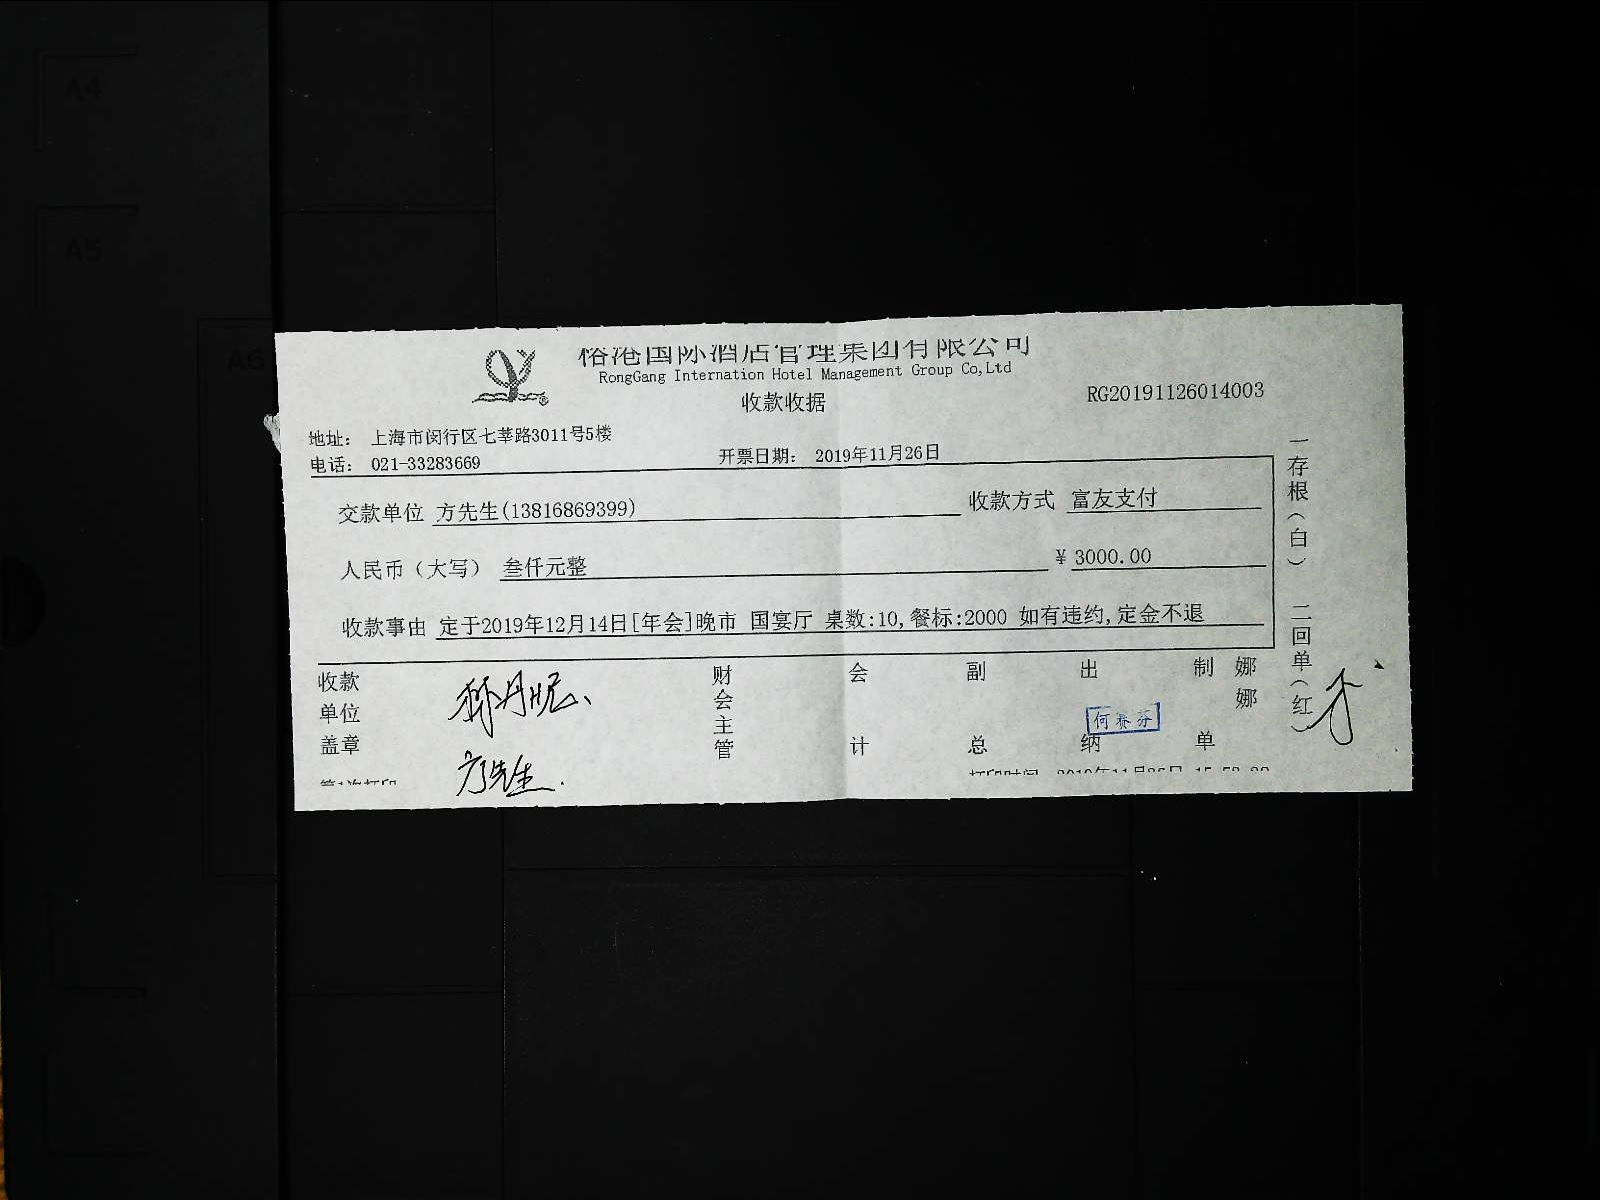 A4
A5
A6
榕港国际酒店管理集团有限公司
RongGang Internation Hotel Management Group Co,Ltd
收款收据
RG20191126014003
地址： 上海市闵行区七莘路3011号5楼
电话： 021-33283669
开票日期： 2019年11月26日
交款单位 方先生(13816869399)
收款方式 富友支付
人民币（大写） 叁仟元整
¥ 3000.00
收款事由 定于2019年12月14日[年会]晚市 国宴厅 桌数:10,餐标:2000 如有违约,定金不退
收款单位盖章
方先生
财会主管
会计
副总
出纳
何赛芬
制单
娜娜
第1次打印
打印时间 2019年11月26日
一存根（白） 二回单（红）